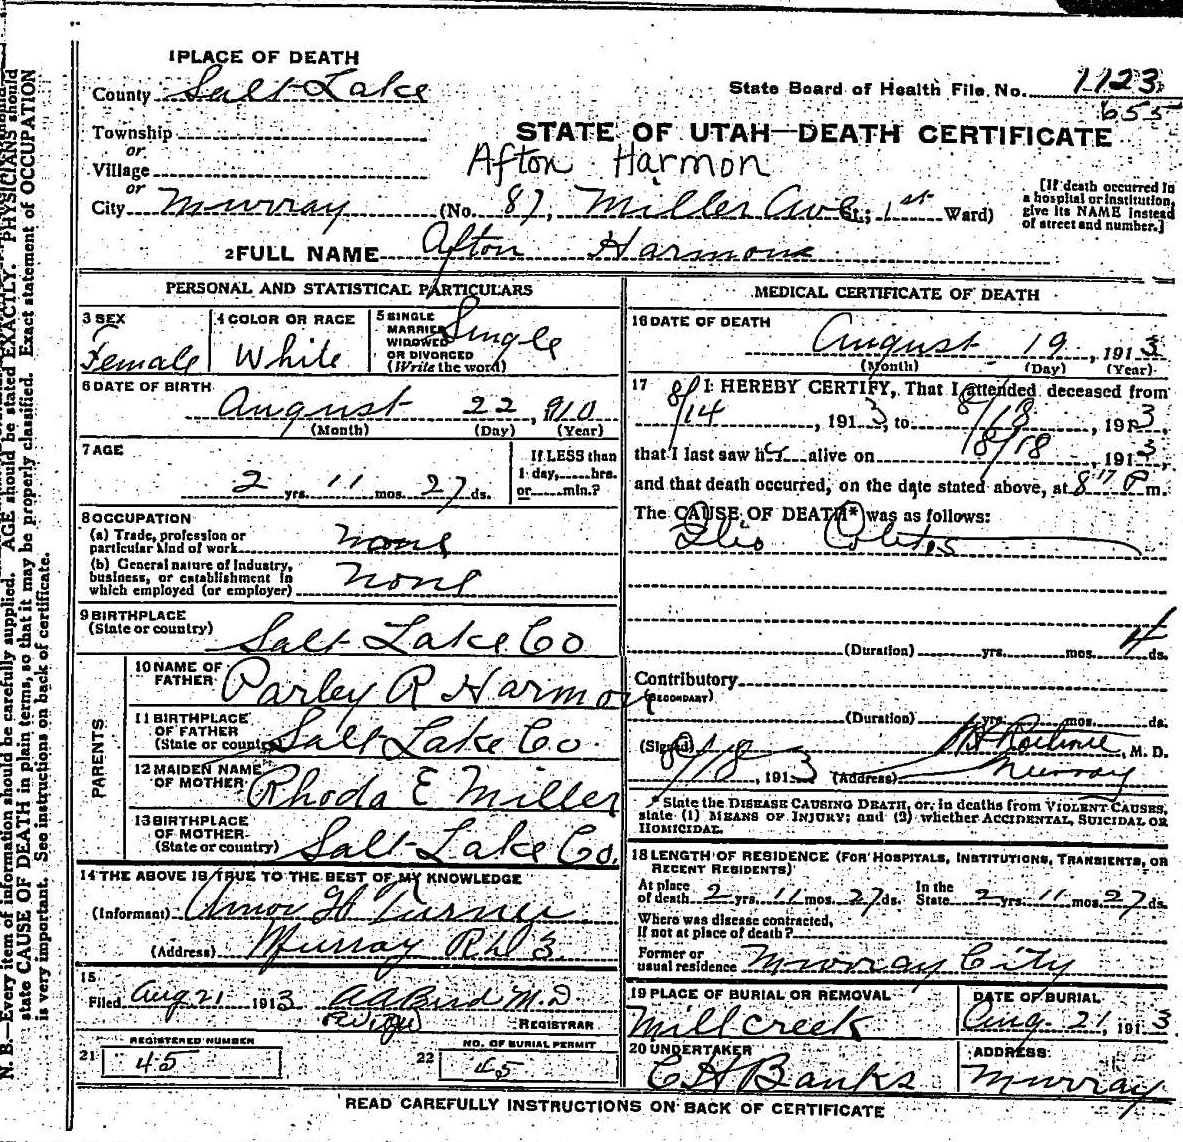 1 PLACE OF DEATH
County Salt Lake
State Board of Health File No. 1123
655
Township
or
Village
or
STATE OF UTAH—DEATH CERTIFICATE
Afton Harmon
City Murray (No. 87, Miller Ave St.; 1st Ward)
[If death occurred in a hospital or institution, give its NAME instead of street and number.]
2 FULL NAME Afton Harmon
PERSONAL AND STATISTICAL PARTICULARS
3 SEX
Female
4 COLOR OR RACE
White
5 SINGLE
MARRIED
WIDOWED
OR DIVORCED
(Write the word)
Single
6 DATE OF BIRTH
August 22, 910
(Month) (Day) (Year)
7 AGE
2 yrs. 11 mos. 27 ds.
If LESS than
1 day, hrs.
or min.?
8 OCCUPATION
(a) Trade, profession or
particular kind of work none
(b) General nature of Industry,
business, or establishment in
which employed (or employer) none
9 BIRTHPLACE
(State or country) Salt Lake Co
PARENTS
10 NAME OF
FATHER Parley R Harmon
11 BIRTHPLACE
OF FATHER
(State or country) Salt Lake Co.
12 MAIDEN NAME
OF MOTHER Rhoda E Miller
13 BIRTHPLACE
OF MOTHER
(State or country) Salt Lake Co.
14 THE ABOVE IS TRUE TO THE BEST OF MY KNOWLEDGE
(Informant) Amos H Turner
(Address) Murray 3
15
Filed Aug 21 1913 Bird M.D
REGISTRAR
REGISTERED NUMBER
21 45
NO. OF BURIAL PERMIT
22 45
MEDICAL CERTIFICATE OF DEATH
16 DATE OF DEATH
August 19, 1913
(Month) (Day) (Year)
17 I HEREBY CERTIFY, That I attended deceased from
8/14, 1913, to 8/18, 1913,
that I last saw her alive on 8/18, 1913,
and that death occurred, on the date stated above, at 8 17 P m.
The CAUSE OF DEATH* was as follows:
Ilio Colitis
(Duration) yrs. mos. 4 ds.
Contributory
(SECONDARY)
(Duration) yrs. mos. ds.
(Signed) M. D.
8/18, 1913 (Address) Murray
* State the DISEASE CAUSING DEATH, or, in deaths from VIOLENT CAUSES,
state (1) MEANS OF INJURY; and (2) whether ACCIDENTAL, SUICIDAL OR
HOMICIDAL.
18 LENGTH OF RESIDENCE (FOR HOSPITALS, INSTITUTIONS, TRANSIENTS, OR
RECENT RESIDENTS)
At place of death 2 yrs. 11 mos. 27 ds. In the State 2 yrs. 11 mos. 27 ds.
Where was disease contracted,
If not at place of death?
Former or
usual residence Murray City
19 PLACE OF BURIAL OR REMOVAL
Millcreek
DATE OF BURIAL
Aug. 21, 1913
20 UNDERTAKER
C H Banks
ADDRESS
Murray
READ CAREFULLY INSTRUCTIONS ON BACK OF CERTIFICATE
N. B.—Every item of information should be carefully supplied. AGE should be stated EXACTLY. PHYSICIANS should
state CAUSE OF DEATH in plain terms, so that it may be properly classified. Exact statement of OCCUPATION
is very important. See instructions on back of certificate.